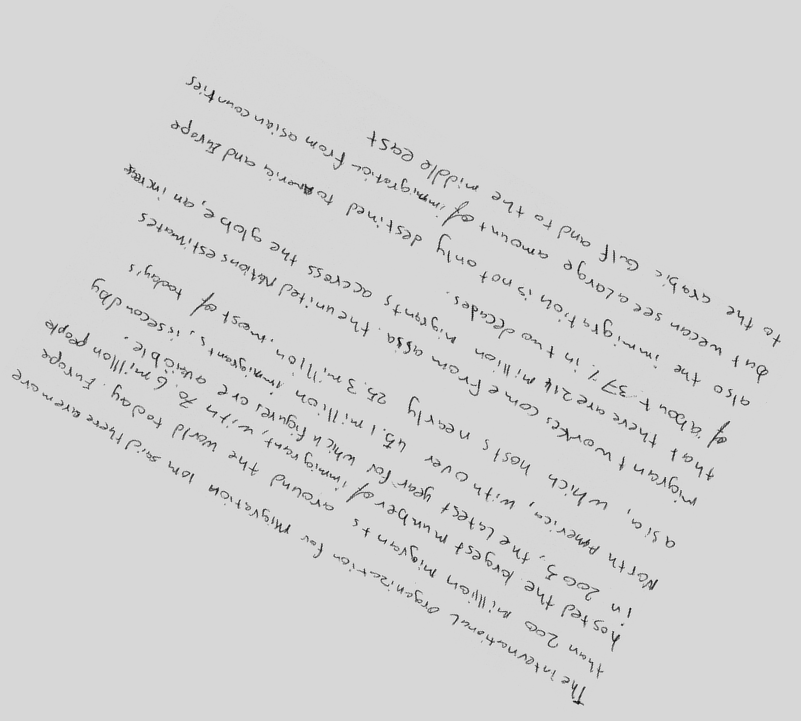 The international organization for migration iom said there are more
than 200 million migrants around the world today. Europe
hosted the largest number of immigrant, with 70.6 million people
in 2005, the latest year for which figures are avaiable.
North America, with over 45.1 million immigrants, is second by
asia, which hosts nearly 25.3 million. most of today's
migrant workes come from asia. the united Nations estimates
that there are 214 million migrants accress the globe, an increas
of about 37% in two decades.
also the immigration is not only destined to Americ and Europe
but we can see a large amount of immigratics from asian counties
to the arabic Gulf and to the middle east